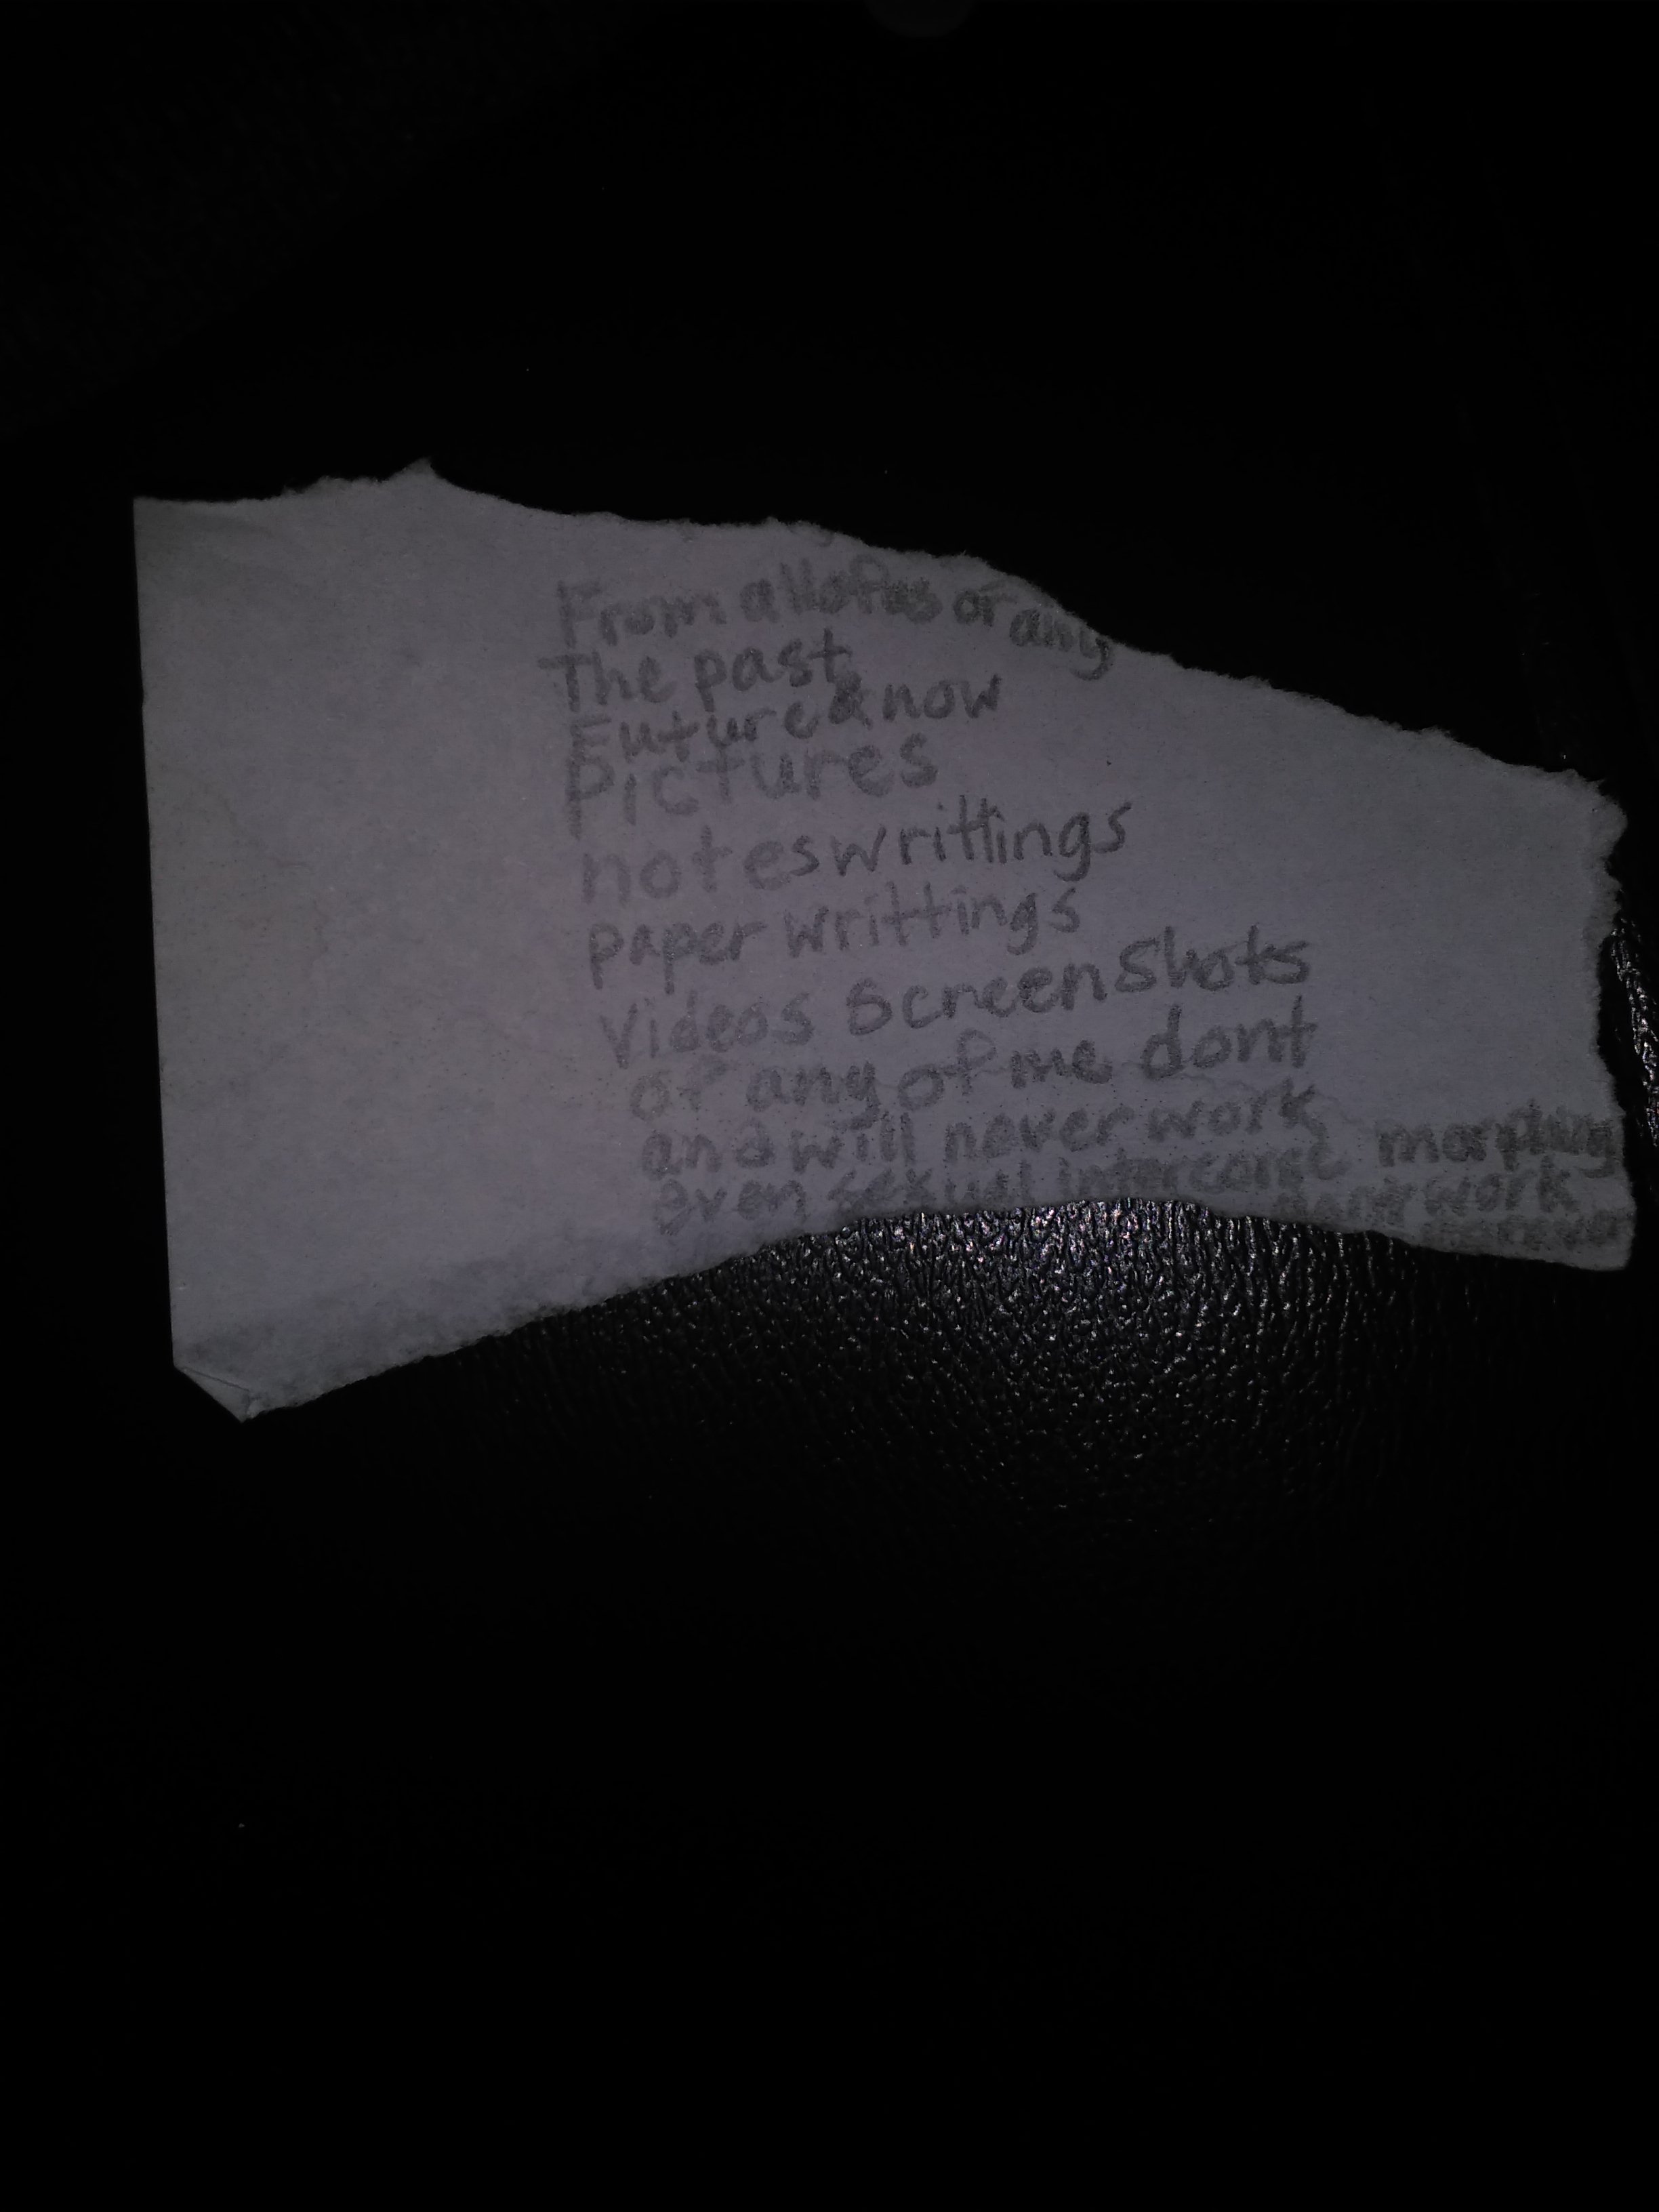 From all of us or any
The past
Future & now
Pictures
notes writtings
paper writtings
Videos Screen Shots
of any of me dont
and will never work
even sexual intercorse morphing
dont work